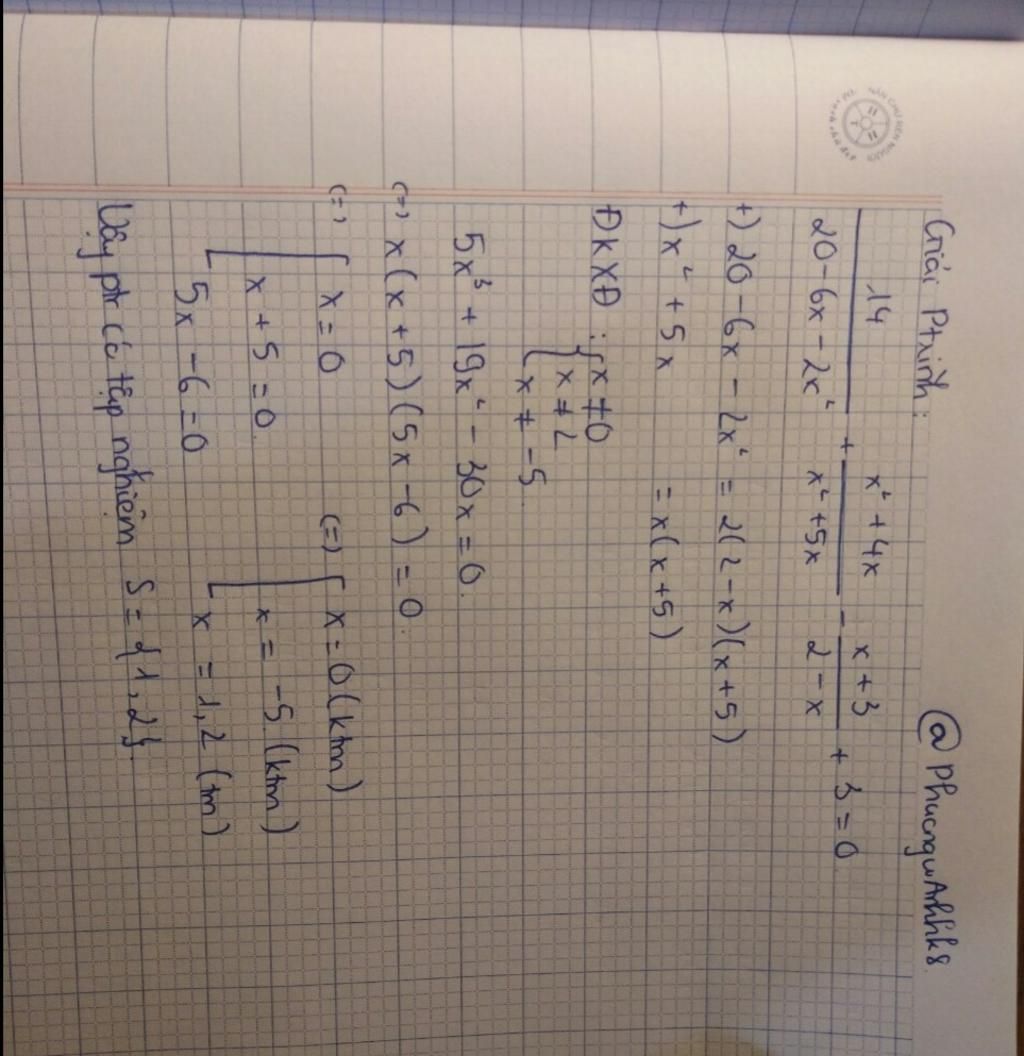 Giải Ptrình: @PhuongwAnhhk8
14/(20-6x-2x²) + (x²+4x)/(x²+5x) - (x+3)/(2-x) + 3 = 0
+) 20 - 6x - 2x² = 2(2-x)(x+5)
+) x² + 5x = x(x+5)
ĐKXĐ : { x ≠ 0
x ≠ 2
x ≠ -5
5x³ + 19x² - 30x = 0.
(=) x(x+5)(5x-6) = 0
(=) [ x = 0 (=) [ x = 0 (ktm)
x + 5 = 0 x = -5 (ktm)
5x - 6 = 0 x = 1,2 (tm)
Vậy ptr có tập nghiệm S = {1,2}.